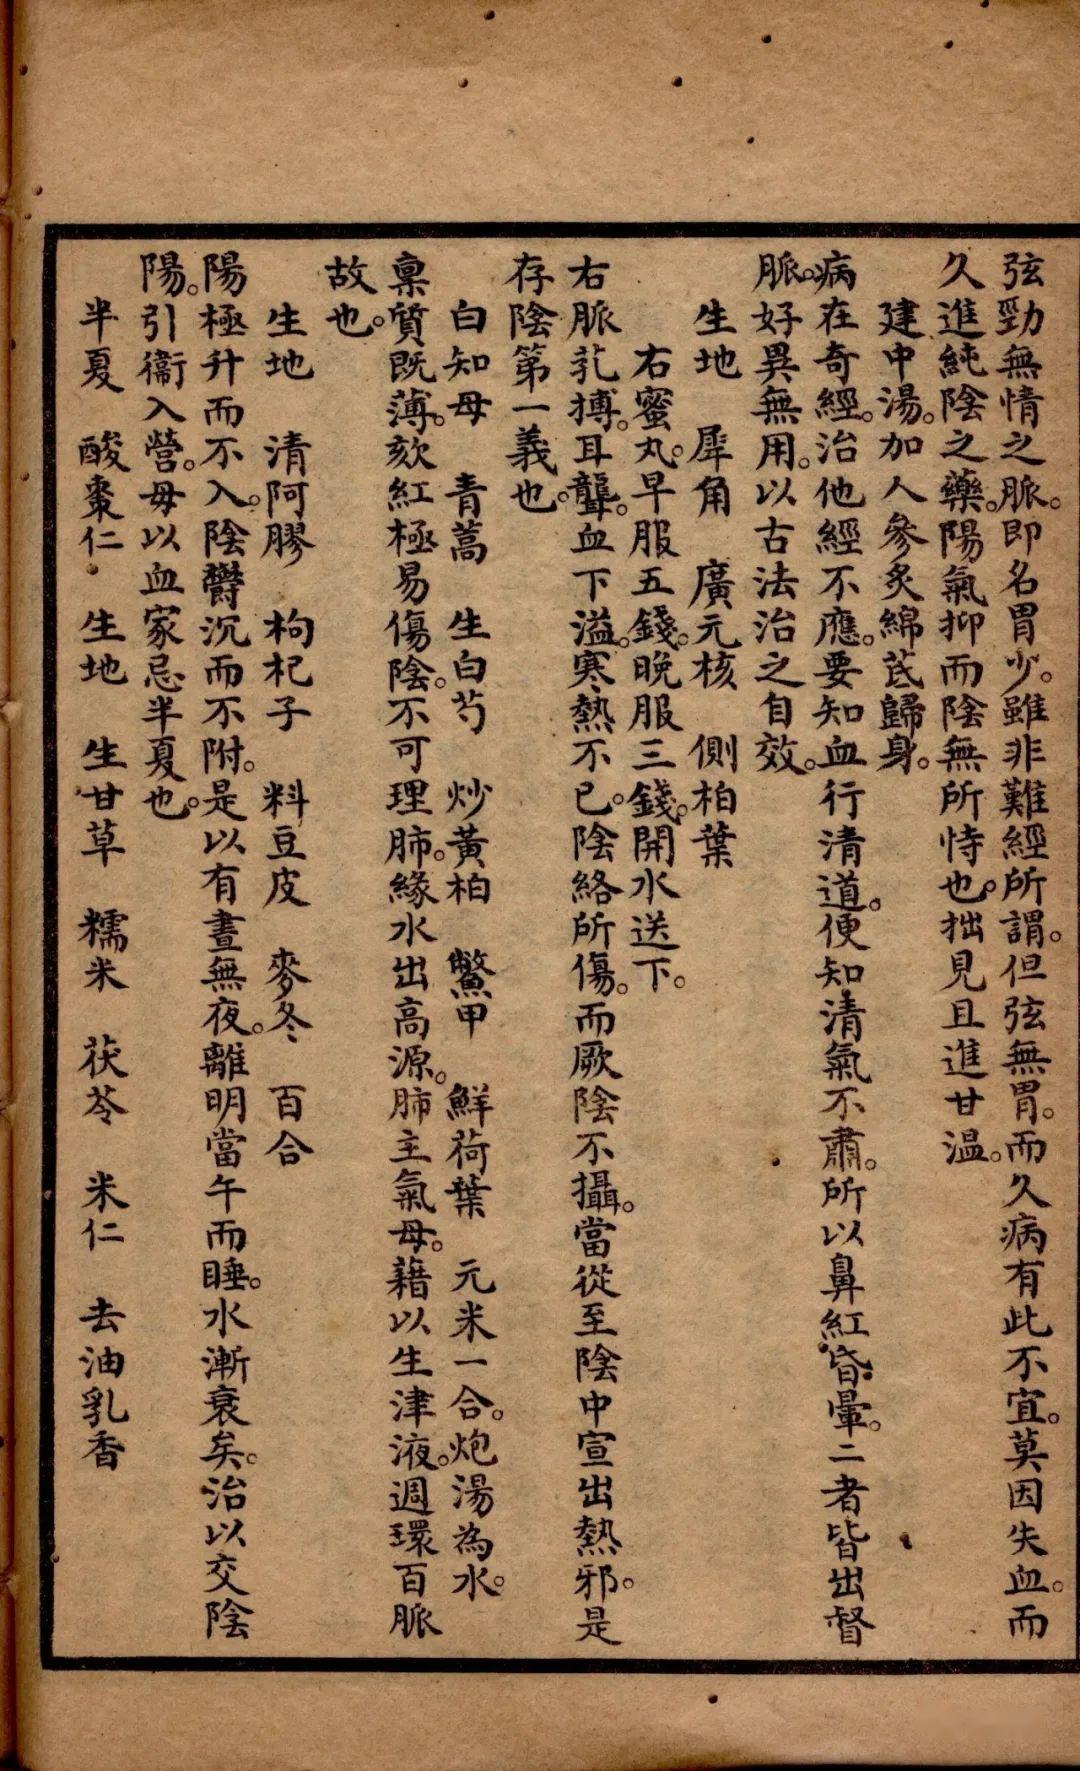 弦勁無情之脈。即名胃少。雖非難經所謂。但弦無胃。而久病有此不宜。莫因失血。而
久進純陰之藥。陽氣抑而陰無所恃也。拙見且進甘温。
建中湯。加人參炙綿芪歸身。
病在奇經。治他經不應。要知血行清道。便知清氣不肅。所以鼻紅昏暈。二者皆出督
脈。好異無用。以古法治之自效。
生地　犀角　廣元核　側柏葉
右蜜丸。早服五錢。晚服三錢。開水送下。
右脈乳搏。耳聾。血下溢。寒熱不已。陰絡所傷。而厥陰不攝。當從至陰中宣出熱邪。是
存陰第一義也。
白知母　青蒿　生白芍　炒黃柏　鱉甲　鮮荷葉　元米一合。炮湯為水。
稟質既薄。欬紅極易傷陰。不可理肺。緣水出高源。肺主氣母。藉以生津液。週環百脈
故也。
生地　清阿膠　枸杞子　料豆皮　麥冬　百合
陽極升而不入。陰欝沉而不附。是以有晝無夜。離明當午而睡。水漸衰矣。治以交陰
陽。引衞入營。毋以血家忌半夏也。
半夏　酸棗仁　生地　生甘草　糯米　茯苓　米仁　去油乳香